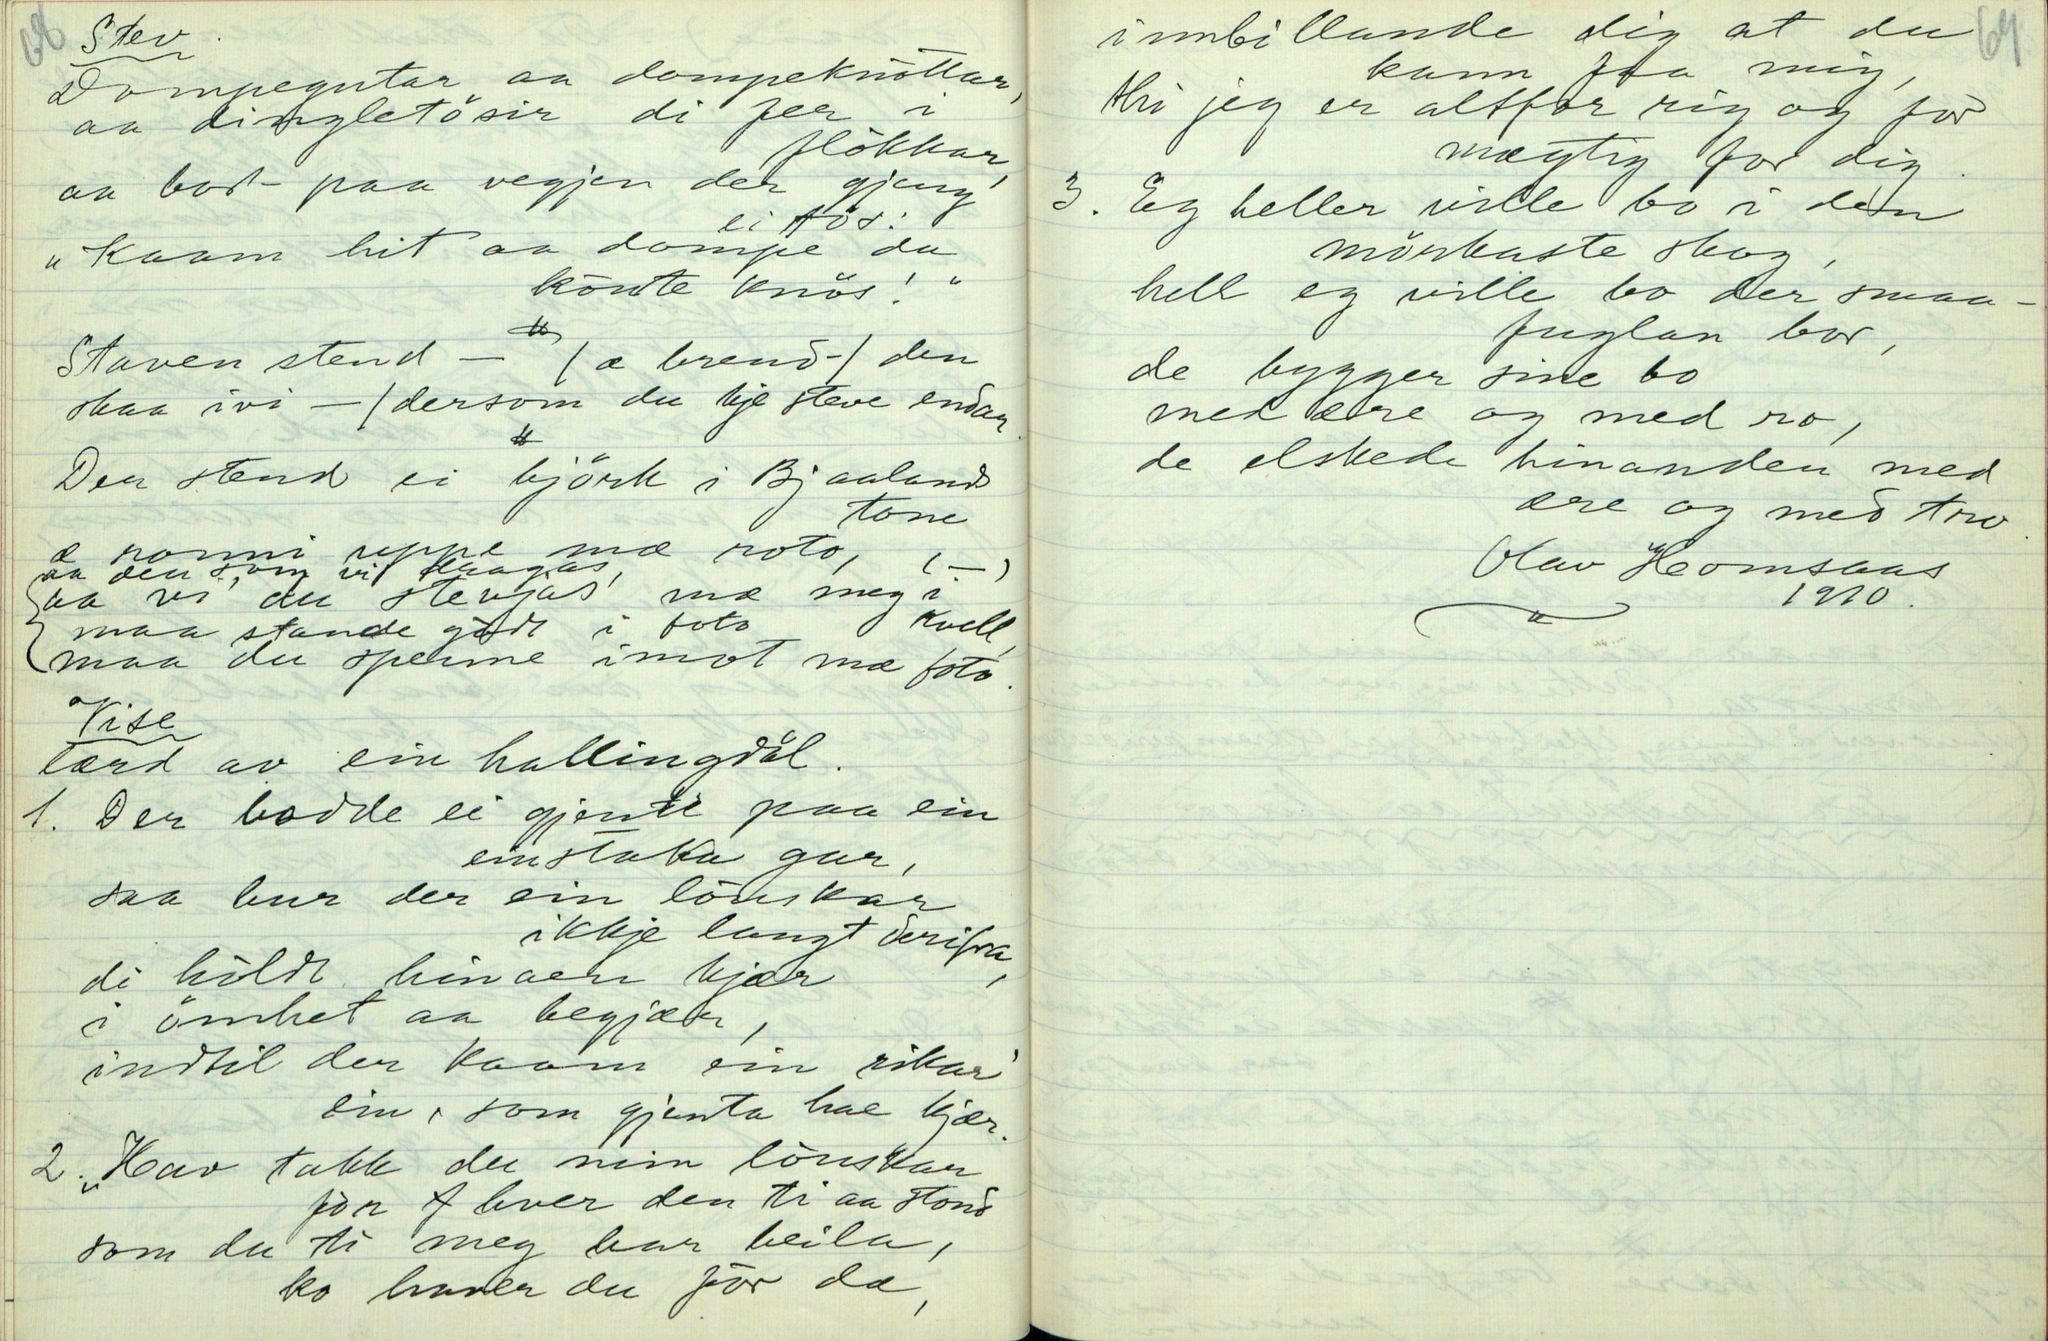 68
Stev.
Dompegutar aa dompeknöttar,
aa dingletösir di fer i
flökkar,
aa bort paa vegjen der gjeng
ei tös:
"Kaam hit aa dompe du
könte knös!"
Staven stend — / æ brend - / den
skaa ivi — / dersom du kje steve endar.
Der stend ei björk i Bjaalands
tone
æ ronni uppe mæ roto, (-)
aa den som vi draagas
aa vi du stevjas mæ meg i
kvell,
maa stande gödt i foto
maa du spenne imot mæ foto.
Vise
lærd av ein hallingdöl.
1. Der bodde ei gjente paa ein
einstaka gar,
saa bur der ein lönskar
ikkje langt derifra,
di höldt hinaen kjær
i ömhet aa begjær,
indtil der kaam ein rikar
ein, som gjenta hae kjær.
2. "Hav takk du min lönskar
för hver den ti aa stond
som du ti meg har beila,
ko haver du för da,
64
innbillande dig at du
kann faa mig,
thi jeg er altfor rig og for
mægtig for dig.
3. Eg heller ville bo i den
mörkaste skog,
hell eg ville bo der smaa-
fuglan bor,
de bygger sine bo
med ære og med ro,
de elskede hinanden med
ære og med tro.
Olav Homsaas
1910.